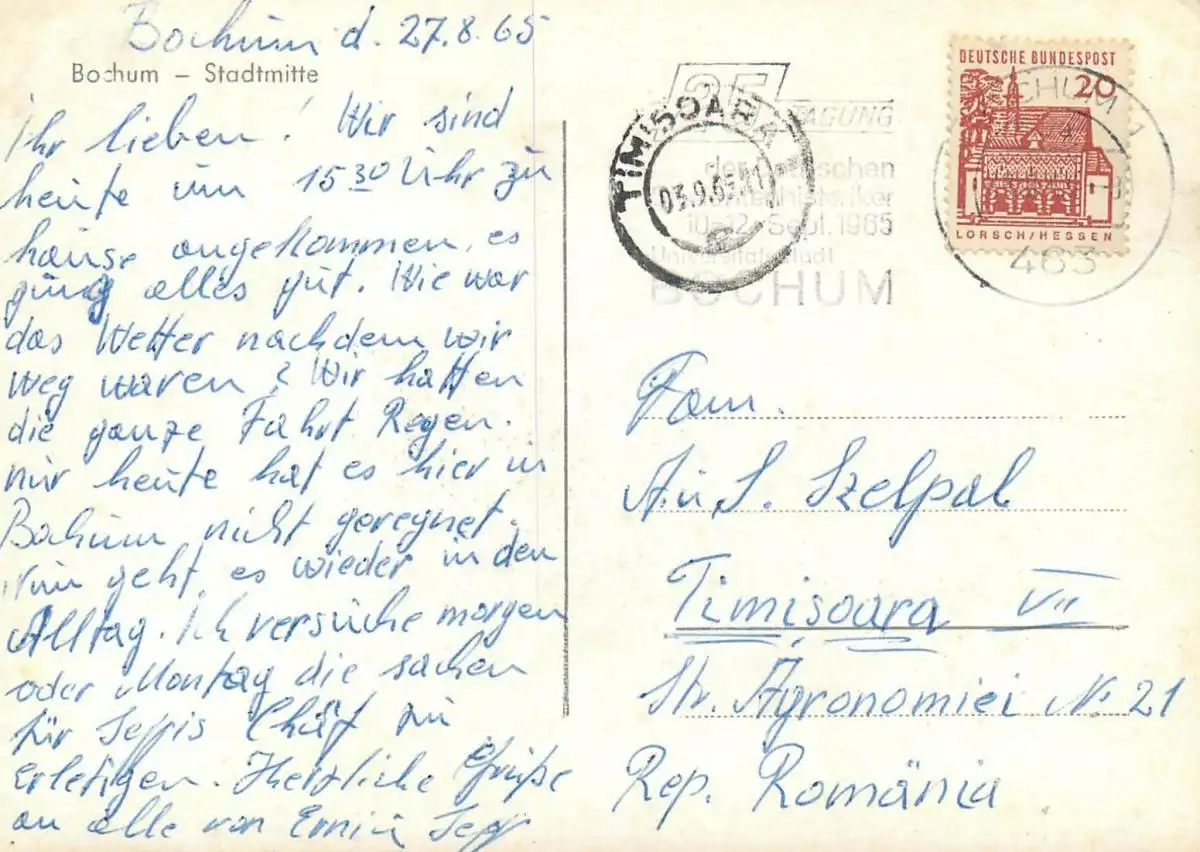 Bochum d. 27.8.65
Bochum – Stadtmitte
Ihr lieben! Wir sind
heute um 15 30 Uhr zu
hause angekommen, es
ging alles gut. Wie war
das Wetter nachdem wir
weg waren? Wir hatten
die ganze Fahrt Regen.
nur heute hat es hier in
Bochum nicht geregnet.
Nun geht es wieder in den
Alltag. Ich versuche morgen
oder Montag die sachen
für Seppis Chäf zu
erletigen. Herzliche Grüße
an alle von Sepp
25
TAGUNG
der deutschen
10-12. Sept. 1965
Universitätsstadt
BOCHUM
TIMISOARA
DEUTSCHE BUNDESPOST
20
LORSCH/HESSEN
BOCHUM 1
463
Fam.
S. Szelpal
Timișoara VII
Str. Agronomiei No 21
Rep. România